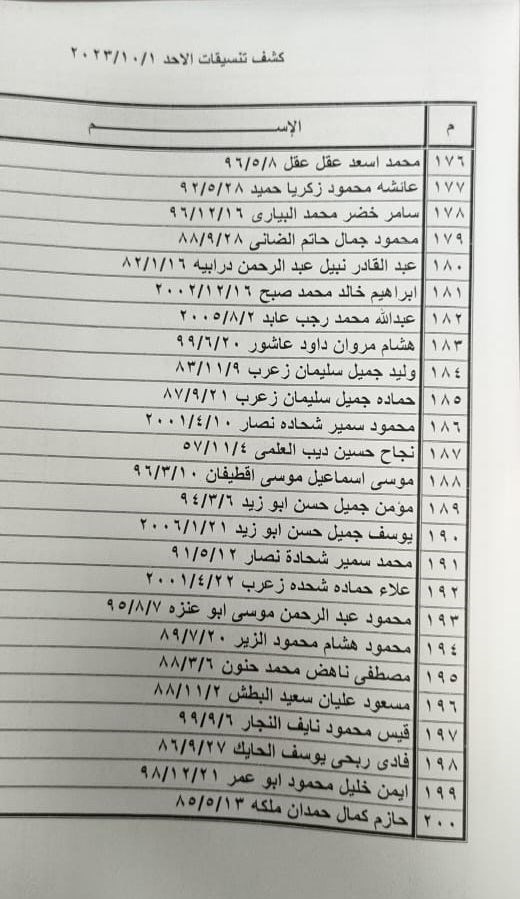 كشف تنسيقات الاحد ٢٠٢٣/١٠/١
م الإســـــــــم
١٧٦ محمد اسعد عقل عقل ٩٦/٥/٨
١٧٧ عائشه محمود زكريا حميد ٩٢/٥/٢٨
١٧٨ سامر خضر محمد البيارى ٩٦/١٢/١٦
١٧٩ محمود جمال حاتم الضانى ٨٨/٩/٢٨
١٨٠ عبد القادر نبيل عبد الرحمن درابيه ٨٢/١/١٦
١٨١ ابراهيم خالد محمد صبح ٢٠٠٢/١٢/١٦
١٨٢ عبدالله محمد رجب عابد ٢٠٠٥/٨/٢
١٨٣ هشام مروان داود عاشور ٩٩/٦/٢٠
١٨٤ وليد جميل سليمان زعرب ٨٣/١١/٩
١٨٥ حماده جميل سليمان زعرب ٨٧/٩/٢١
١٨٦ محمود سمير شحاده نصار ٢٠٠١/٤/١٠
١٨٧ نجاح حسين ديب العلمى ٥٧/١١/٤
١٨٨ موسى اسماعيل موسى اقطيفان ٩٦/٣/١٠
١٨٩ مؤمن جميل حسن ابو زيد ٩٤/٣/٦
١٩٠ يوسف جميل حسن ابو زيد ٢٠٠٦/١/٢١
١٩١ محمد سمير شحادة نصار ٩١/٥/١٢
١٩٢ علاء حماده شحده زعرب ٢٠٠١/٤/٢٢
١٩٣ محمود عبد الرحمن موسى ابو عنزه ٩٥/٨/٧
١٩٤ محمود هشام محمود الزير ٨٩/٧/٢٠
١٩٥ مصطفى ناهض محمد حنون ٨٨/٣/٦
١٩٦ مسعود عليان سعيد البطش ٨٨/١١/٢
١٩٧ قيس محمود نايف النجار ٩٩/٩/٦
١٩٨ فادى ربحى يوسف الحايك ٨٦/٩/٢٧
١٩٩ ايمن خليل محمود ابو عمر ٩٨/١٢/٢١
٢٠٠ حازم كمال حمدان ملكه ٨٥/٥/١٣